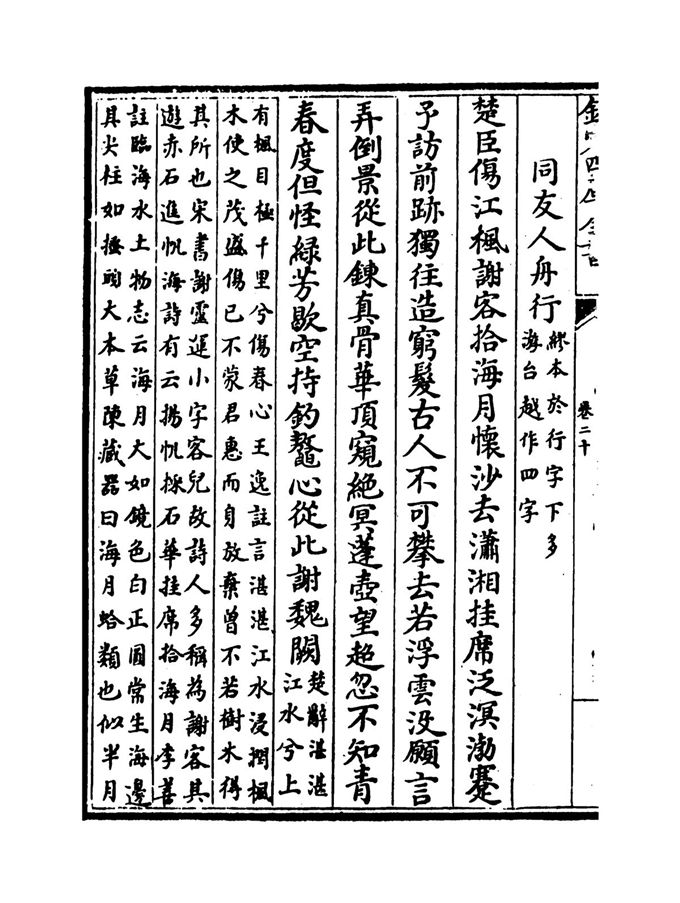 卷二十
同友人舟行
繆本於行字下多
游台越作四字
楚臣傷江楓謝客拾海月懷沙去瀟湘挂席泛溟渤蹇
予訪前跡獨往造窮髮古人不可攀去若浮雲没願言
弄倒景從此鍊真骨華頂窺絶冥蓬壺望超忽不知青
春度但怪緑芳歇空持釣鼇心從此謝魏闕
楚辭湛湛
江水兮上
有楓目極千里兮傷春心王逸註言湛湛江水浸潤楓
木使之茂盛傷已不蒙君惠而自放棄曾不若樹木得
其所也宋書謝靈運小字客兒故詩人多稱為謝客其
遊赤石進帆海詩有云揚帆採石華挂席拾海月李善
註臨海水土物志云海月大如鏡色白正圓常生海邊
其尖柱如搔頭大本草陳藏器曰海月蛤類也似半月